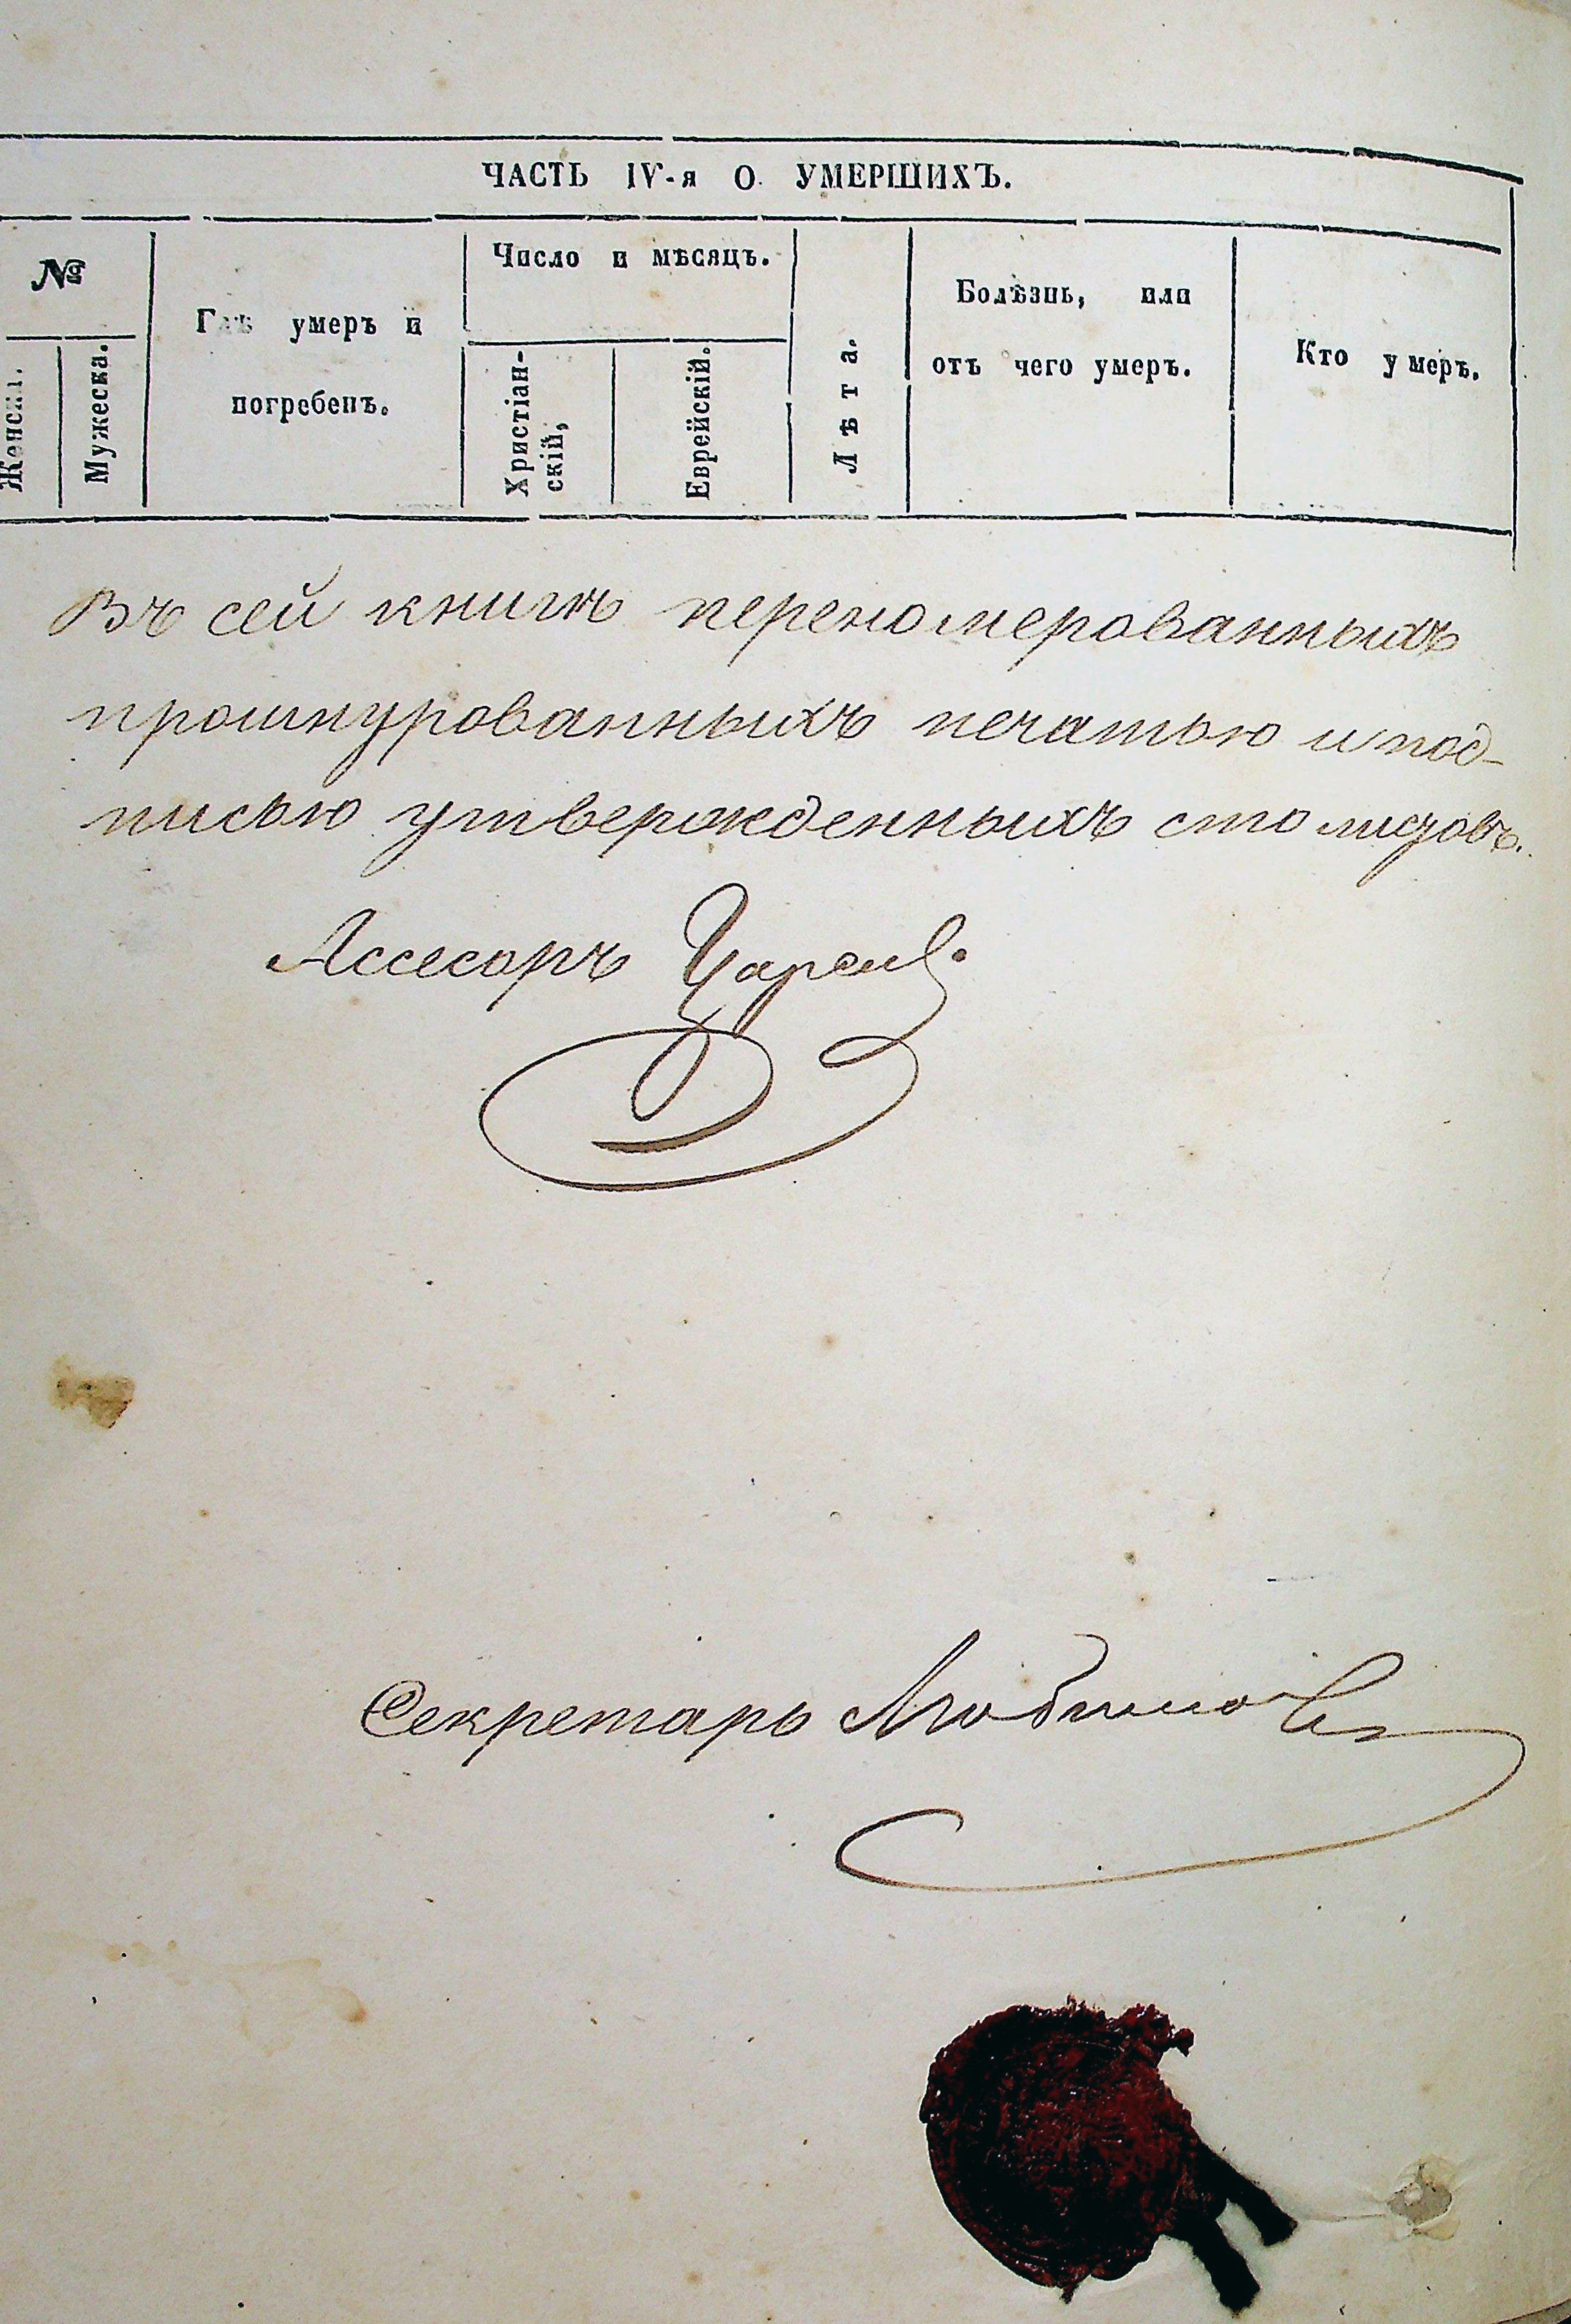 ЧАСТЬ IV-я О УМЕРШИХЪ.
№
Женска.
Мужеска.
Гдѣ умеръ и
погребенъ.
Число и мѣсяцъ.
Христіан-
скій,
Еврейскій.
Лѣта.
Болѣзнь, или
отъ чего умеръ.
Кто умеръ.
Въ сей книгѣ переномерованныхъ
прошнурованныхъ печатью и под-
писью утвержденныхъ сто листовъ.
Ассесоръ
Секретарь Любимовъ